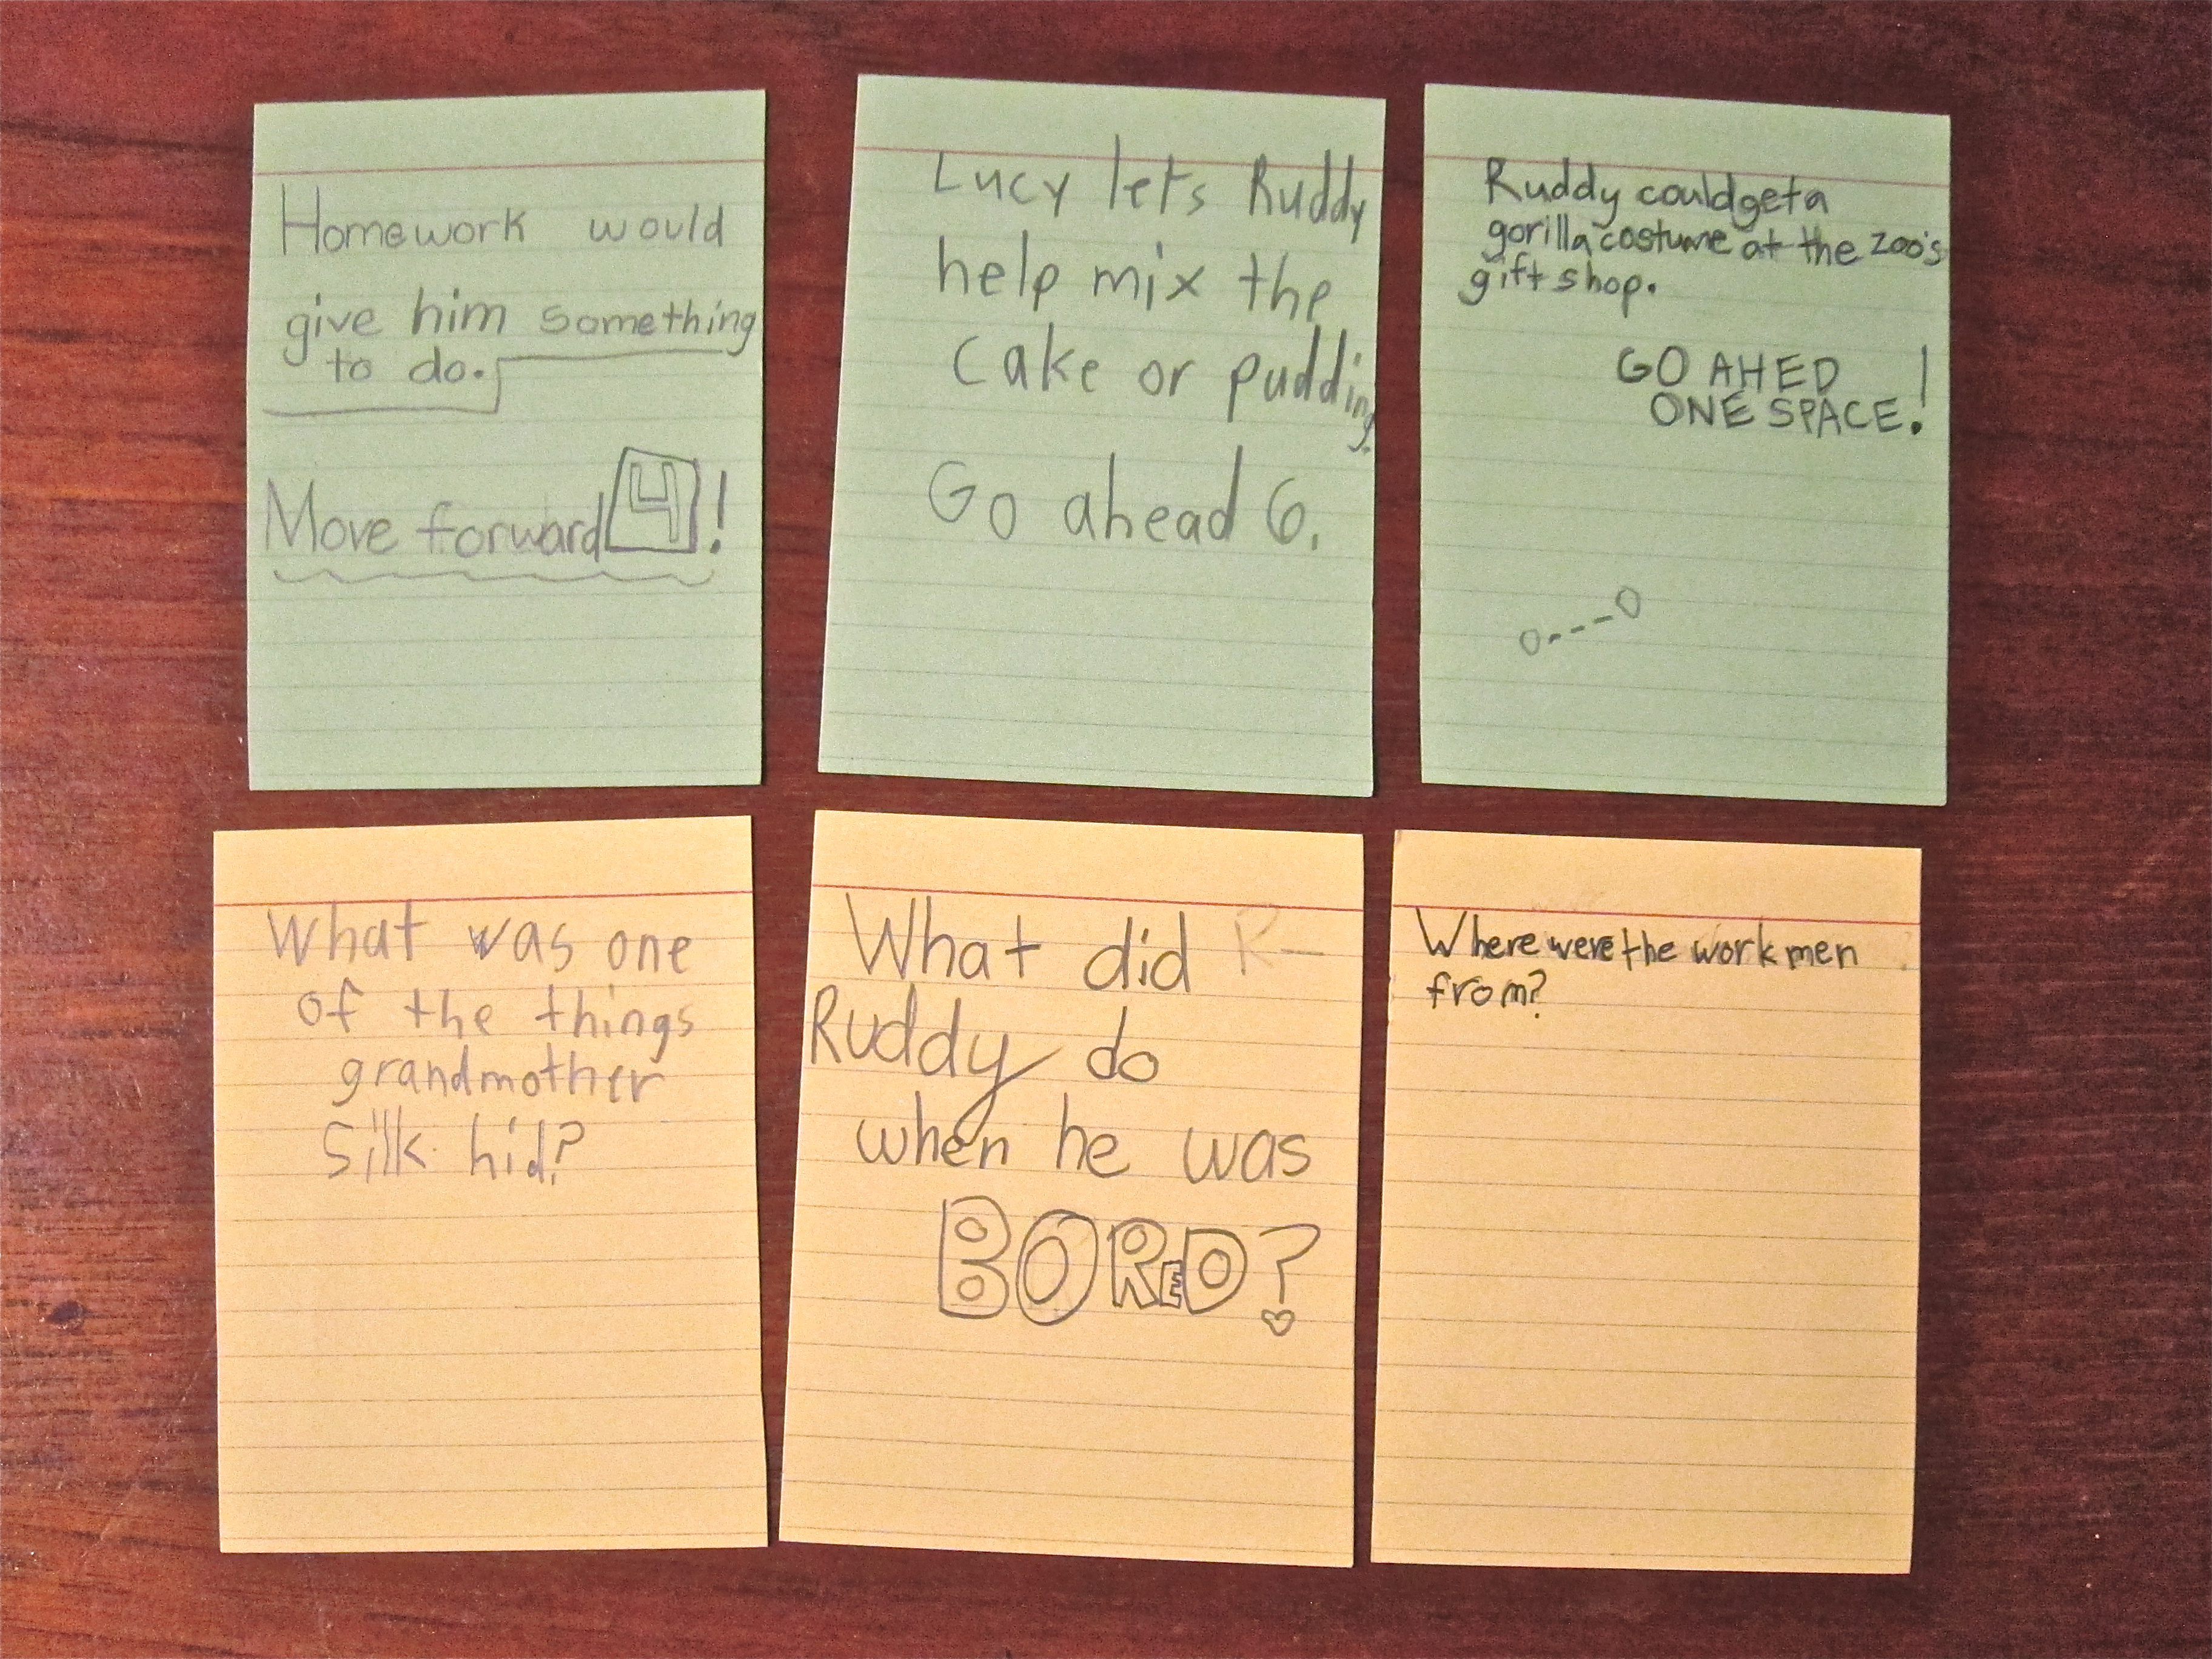 Homework would
give him something
to do.
Move forward 4!
Lucy lets Ruddy
help mix the
Cake or pudding.
Go ahead 6.
Ruddy could get a
gorilla costume at the zoo's
gift shop.
GO AHED
ONE SPACE!
What was one
of the things
grandmother
Silk hid?
What did R
Ruddy do
when he was
BORED?
Where were the workmen
from?